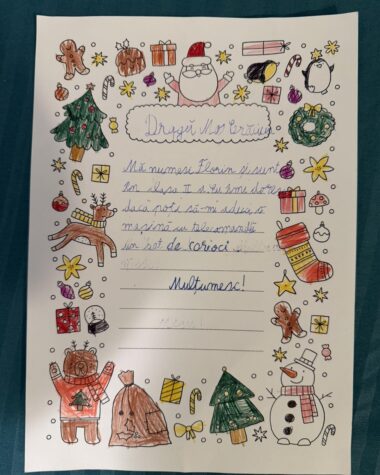 Dragă Moș Crăciun
Mă numesc Florin și sunt
în clasa II a
dacă poți să-mi aduci o
mașină cu telecomandă
un set de carioci
Mulțumesc!